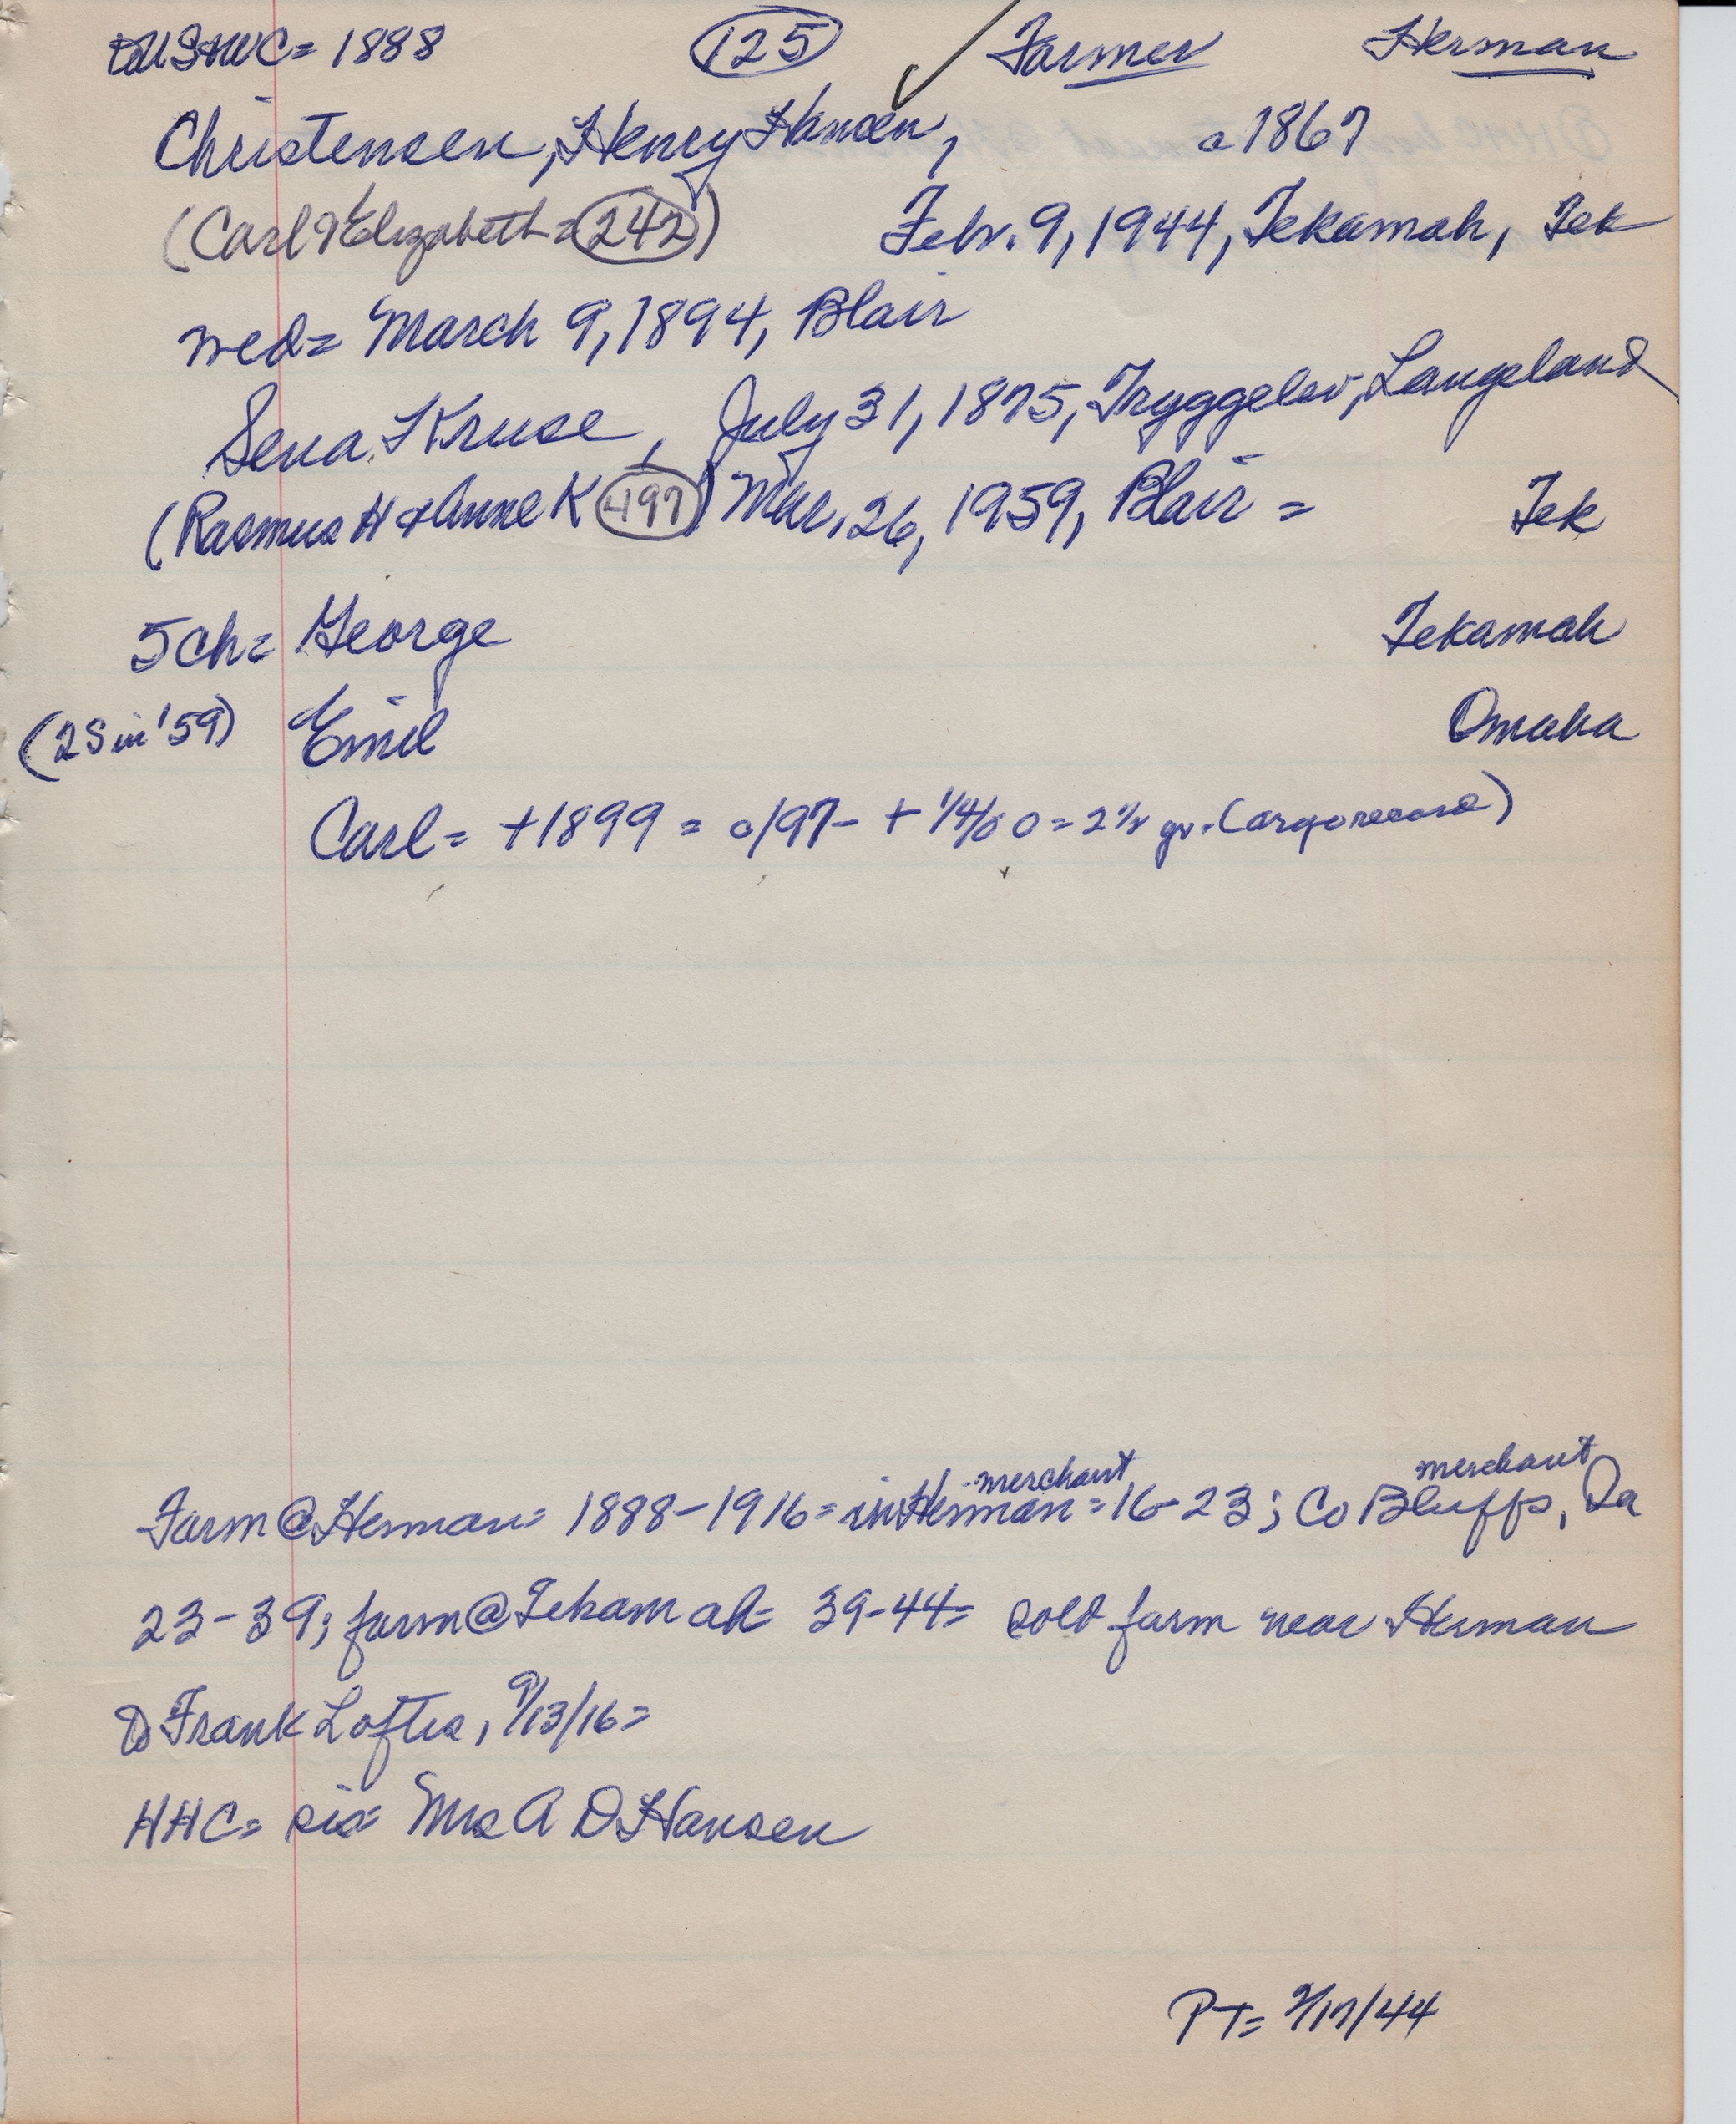 to US & WC = 1888 (125) Farmer Herman
Christensen, Henry Hansen, a 1867
(Carl & Elizabeth = 242) Febr. 9, 1944, Tekamah, Tek
wed = March 9, 1894, Blair
Sena Kruse, July 31, 1875, Tryggelev, Langeland
(Rasmus H & Anne K 497) Mar. 26, 1959, Blair = Tek
5 ch = George Tekamah
(2 S in '59) Emil Omaha
Carl = +1899 = o/97 - + 1/4/00 = 2 1/2 yr. (
merchant merchant
Farm @ Herman = 1888-1916 = in Herman = 16-23; Co Bluffs, Ia
23-39; farm @ Tekamah = 39-44 = sold farm near Herman
to Frank Loftis, 9/13/16 =
HHC = sis = Mrs A D Hansen
PT = 2/17/44